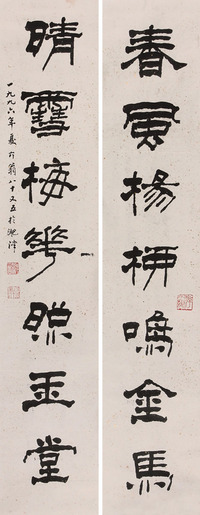 春風楊柳鳴金馬
晴雪梅花照玉堂
一九九六年夏翁八十又五於